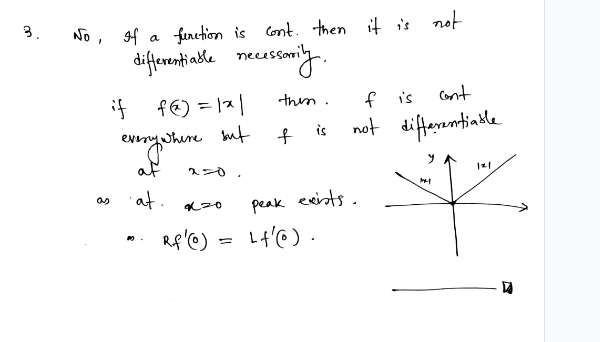 3. No, If a function is cont. then it is not
differentiable necessarily.
if f(x) = |x| then. f is cont
everywhere but f is not differentiable
at x=0.
as at. x=0 peak exists.
∴ Rf'(0) = Lf'(0).
y
|x|